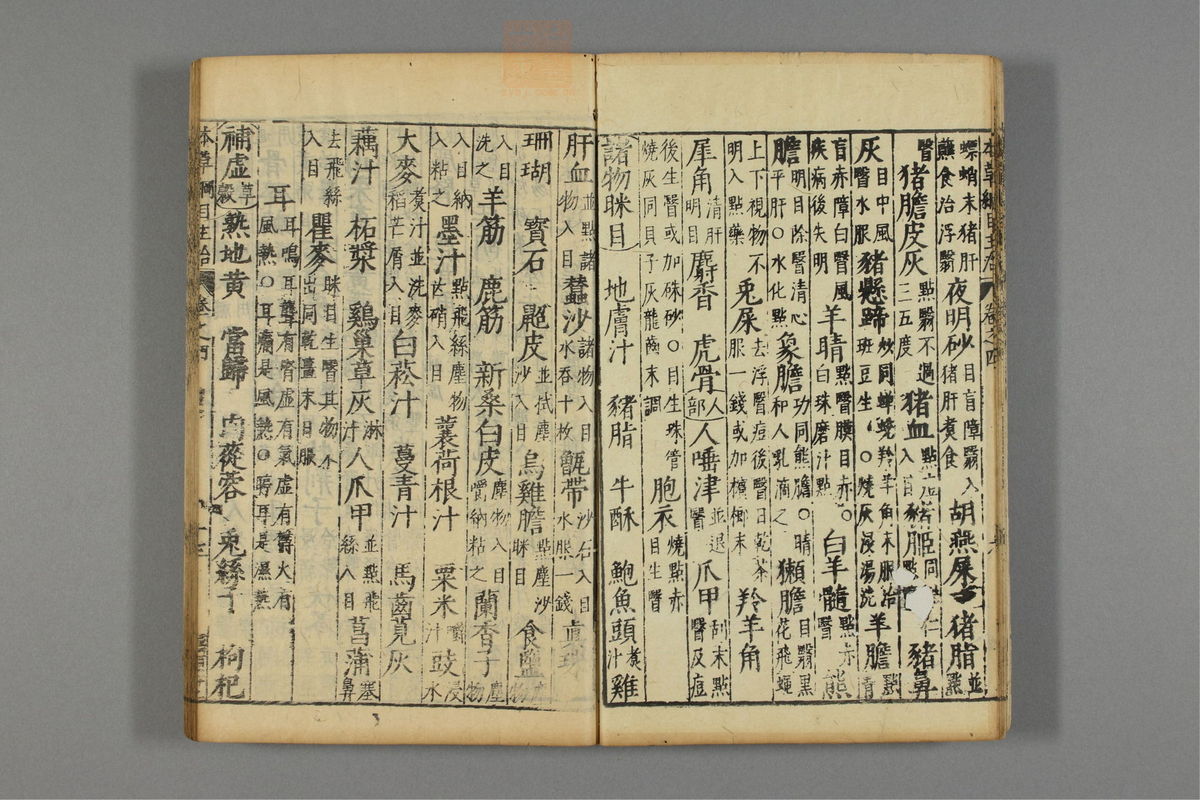 螵蛸末猪肝蘸食治浮翳 夜明砂目盲障翳入猪肝煮食 胡燕屎 猪脂並點
翳 猪膽皮灰點翳不過三五度 猪血點 豬鼻
灰目中風翳水服 豬懸蹄炒同蟬蛻羚羊角末服治班豆生 ○燒灰浸湯洗 羊膽點青
盲赤障白翳風疾病後失明 羊睛點翳膜目赤○白珠磨汁點 白羊髓點赤翳 熊
膽明目除翳清心平肝○水化點 象膽功同熊膽○睛和人乳滴之 獺膽目翳黑花飛蠅
上下視物不明入點藥 兎屎去浮翳痘後翳日乾茶服一錢或加檳榔末 羚羊角
犀角清肝明目 麝香 虎骨 人部 人唾津並退翳 爪甲刮末點翳及痘
後生翳或加硃砂○目生珠管燒灰同貝子灰龍齒末調 胞衣燒點赤目生翳
諸物眯目 地膚汁 豬脂 牛酥 鮑魚頭煮汁 雞
肝血並點諸物入目 蠶沙諸物入目水吞十枚 甑帶沙石入目水服一錢 眞珠
珊瑚 寶石 鼊皮並拭塵沙入目 烏雞膽點塵沙眯目 食鹽
入目洗之 羊筋 鹿筋 新桑白皮塵物入目嚼納粘之 蘭香子塵物
入目納入粘之 墨汁點飛絲塵物芒硝入目 蘘荷根汁 粟米嚼汁 豉浸水
大麥煮汁並洗麥稻芒屑入目 白菘汁 蔓青汁 馬齒莧灰
藕汁 柘漿 鷄巢草灰淋汁 人爪甲並點飛絲入目 菖蒲塞鼻
去飛絲入目 瞿麥眯目生翳其物不出同乾薑末日服
耳耳鳴耳聾有腎虛有氣虛有鬱火有風熱○耳痛是風熱○聤耳是濕熱
補虛 草穀 熟地黄 當歸 肉蓯蓉 兎絲子 枸杞
本草綱目主治 卷之四